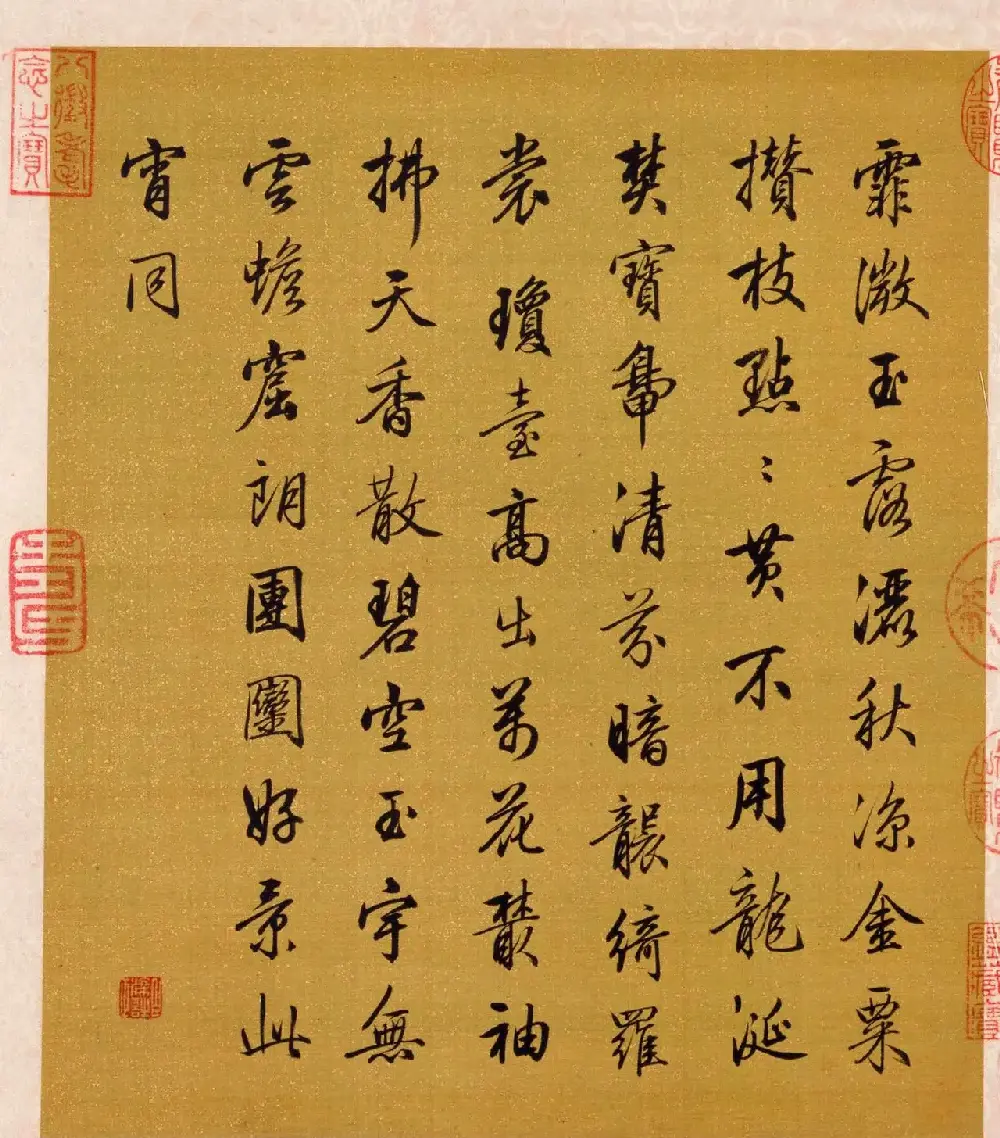 霏微玉露灑秋凉金粟
攢枝點〻黄不用龍涎
焚寶鼎清芬暗襲綺羅
裳瓊臺高出萬花叢袖
拂天香散碧空玉宇無
雲蟾窟朗團圞好景此
宵同
八徵耄念之寶